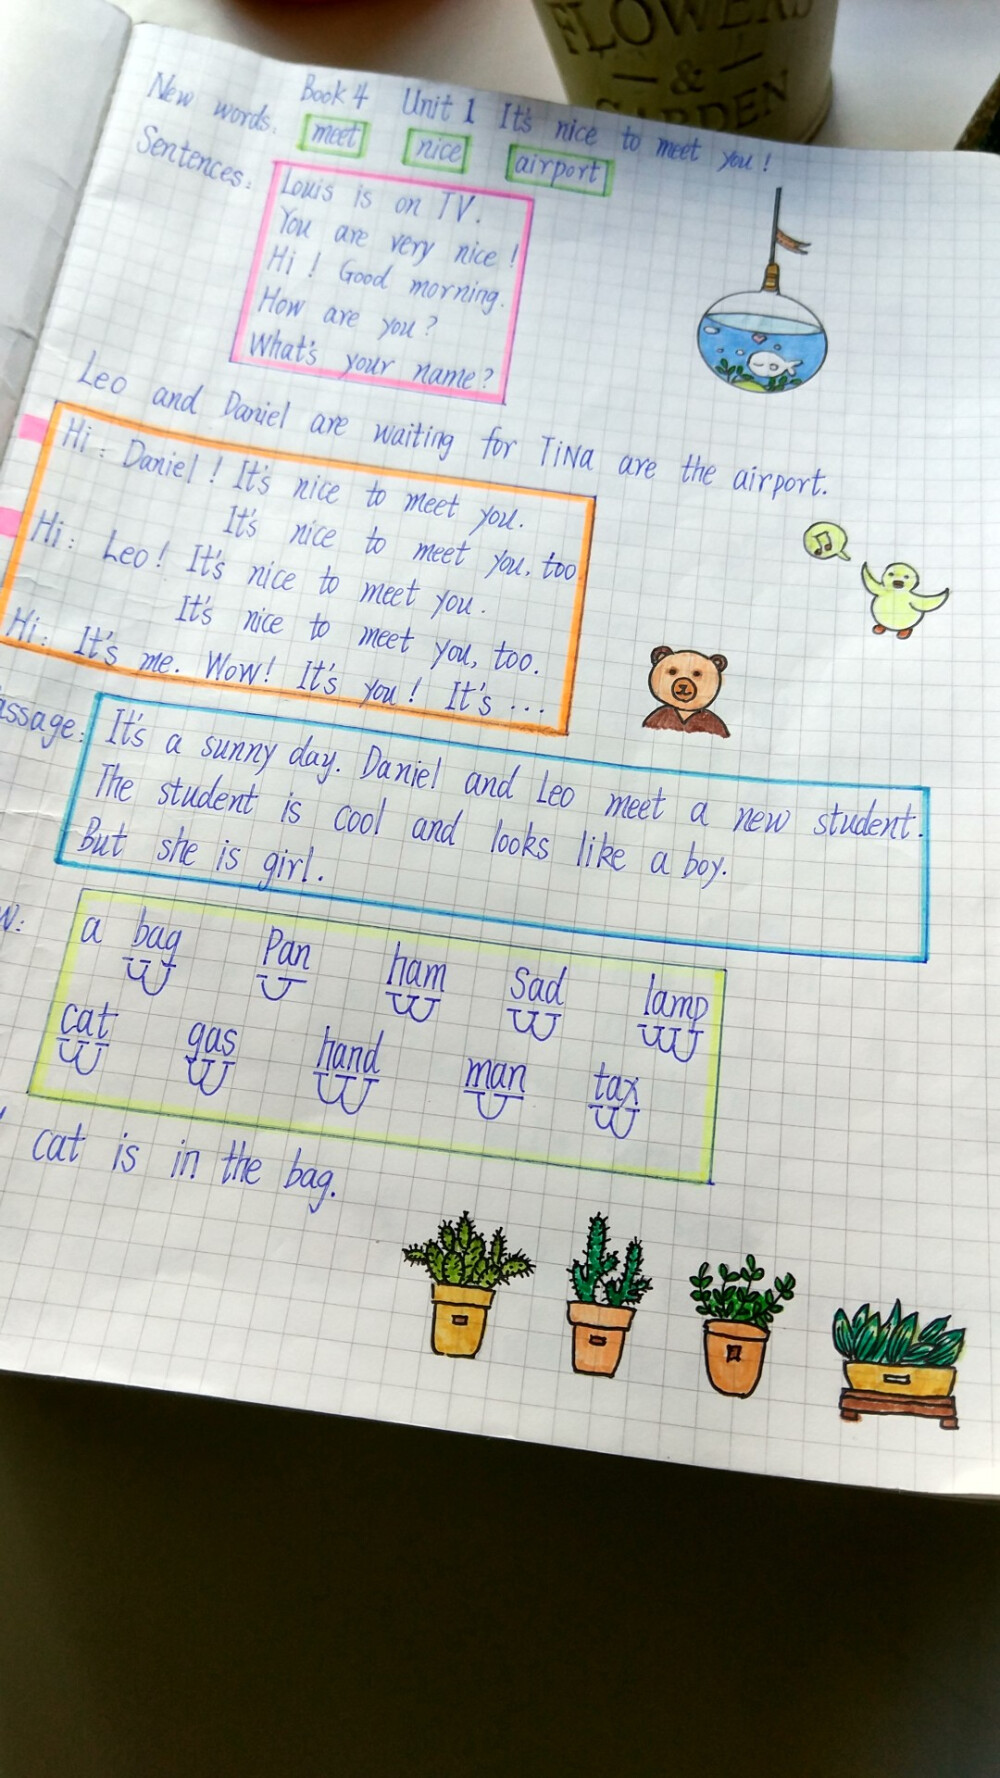 FLOWERS
&
GARDEN
Book 4 Unit 1 It's nice to meet you!
New words: meet nice airport
Sentences: Louis is on TV.
You are very nice!
Hi! Good morning.
How are you?
What's your name?
Leo and Daniel are waiting for TiNa are the airport.
Hi: Daniel! It's nice to meet you.
It's nice to meet you, too
Hi: Leo! It's nice to meet you.
It's nice to meet you, too.
Hi: It's me. Wow! It's you! It's ...
assage: It's a sunny day. Daniel and Leo meet a new student.
The student is cool and looks like a boy.
But she is girl.
w: a bag Pan ham Sad lamp
cat gas hand man tax
cat is in the bag.